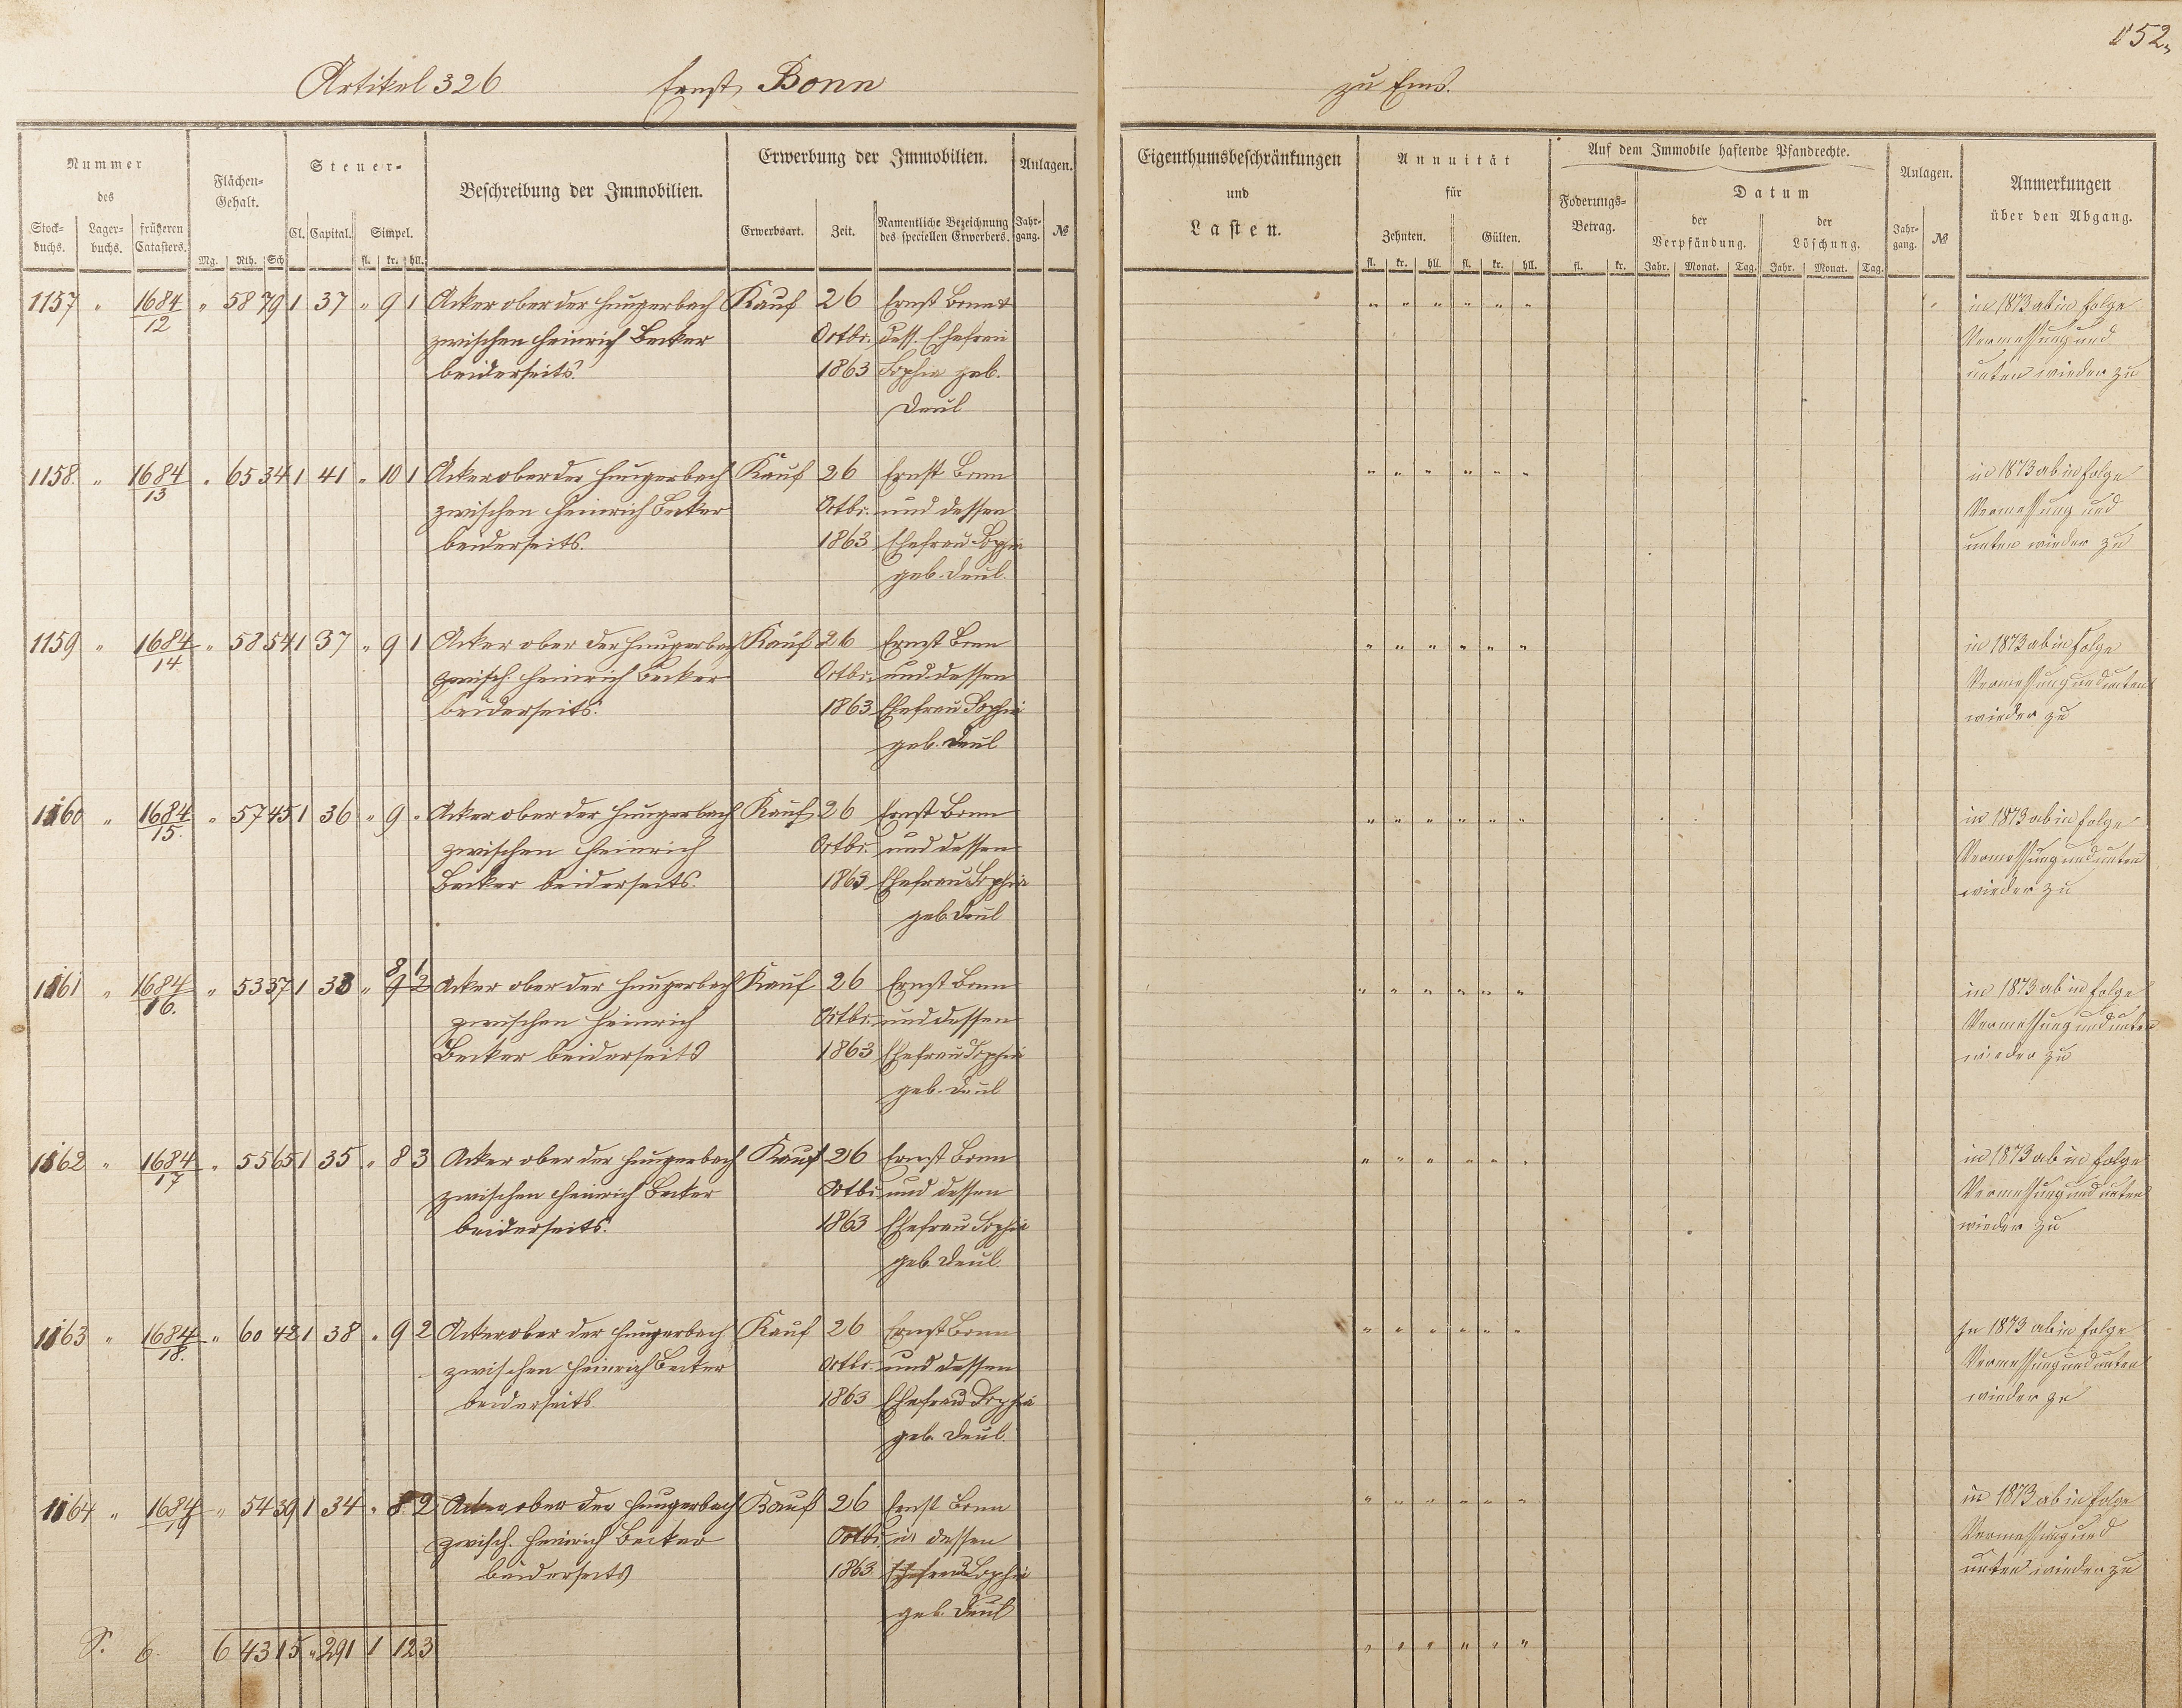 152.
Artikel 326 Ernst Bonn zu Ems.
Nummer des
Stock-buchs. Lager-buchs. früheren Catasters.
Flächen-Gehalt.
Mg. Rth. Sch
Steuer-
Cl. Capital. Simpel.
fl. kr. hll.
Beschreibung der Immobilien.
Erwerbung der Immobilien.
Erwerbsart. Zeit. Namentliche Bezeichnung des speciellen Erwerbers.
Anlagen.
Jahr-gang. №
Eigenthumsbeschränkungen und Lasten.
Annuität für
Zehnten. Gülten.
fl. kr. hll. fl. kr. hll.
Auf dem Immobile haftende Pfandrechte.
Foderungs-Betrag.
fl. kr.
Datum
der Verpfändung. der Löschung.
Jahr. Monat. Tag. Jahr. Monat. Tag.
Anlagen.
Jahr-gang. №
Anmerkungen über den Abgang.
1157 " 1684/12 " 58 79 1 37 " 9 1 Acker ober der Hungerbach Kauf 26 Ernst Bonn & " " " " " " in 1873 ab in folge
zwischen Heinrich Becker Octbr. dess. Ehefrau Vermessung und
beiderseits. 1863 Sophie geb. unten wieder zu
Deul
1158. " 1684/13 " 65 34 1 41 " 10 1 Acker ober der Hungerbach Kauf 26 Ernst Bonn " " " " " " in 1873 ab in folge
zwischen Heinrich Becker Octbr. und dessen Vermessung und
beiderseits. 1863 Ehefrau Sophie unten wieder zu
geb. Deul.
1159 " 1684/14 " 58 54 1 37 " 9 1 Acker ober der Hungerbach Kauf 26 Ernst Bonn " " " " " " in 1873 ab in folge
zwisch. Heinrich Becker Octbr. und dessen Vermessung und unten
beiderseits. 1863 Ehefrau Sophie wieder zu
geb. Deul
1160 " 1684/15. " 57 45 1 36 " 9 " Acker ober der Hungerbach Kauf 26 Ernst Bonn " " " " " " in 1873 ab in folge
zwischen Heinrich Octbr. und dessen Vermessung und unten
Becker beiderseits. 1863 Ehefrau Sophie wieder zu
geb. Deul
1161 " 1684/16. " 53 37 1 33 " 9 2 8 1 Acker ober der Hungerbach Kauf 26 Ernst Bonn " " " " " " in 1873 ab in folge
zwischen Heinrich Octbr. und dessen Vermessung und unten
Becker beiderseits 1863 Ehefrau Sophie wieder zu
geb. Deul
1162 " 1684/17 " 55 65 1 35 " 8 3 Acker ober der Hungerbach Kauf 26 Ernst Bonn " " " " " " in 1873 ab in folge
zwischen Heinrich Becker Octbr. und dessen Vermessung und unten
beiderseits. 1863 Ehefrau Sophie wieder zu
geb. Deul.
1163 " 1684/18. " 60 42 1 38 " 9 2 Acker ober der Hungerbach Kauf 26 Ernst Bonn " " " " " " In 1873 ab in folge
zwischen Heinrich Becker Octbr. und dessen Vermessung und unten
beiderseits 1863 Ehefrau Sophie wieder zu
geb. Deul.
1164 " 1684/19 " 54 39 1 34 " 8 2 Acker ober der Hungerbach Kauf 26 Ernst Bonn " " " " " " in 1873 ab in folge
zwisch. Heinrich Becker Octbr. u. dessen Vermessung und
beiderseits 1863 Ehefrau Sophie unten wieder zu
geb. Deul
S. 6. 6 43 15 " 291 1 12 3 " " " " " "